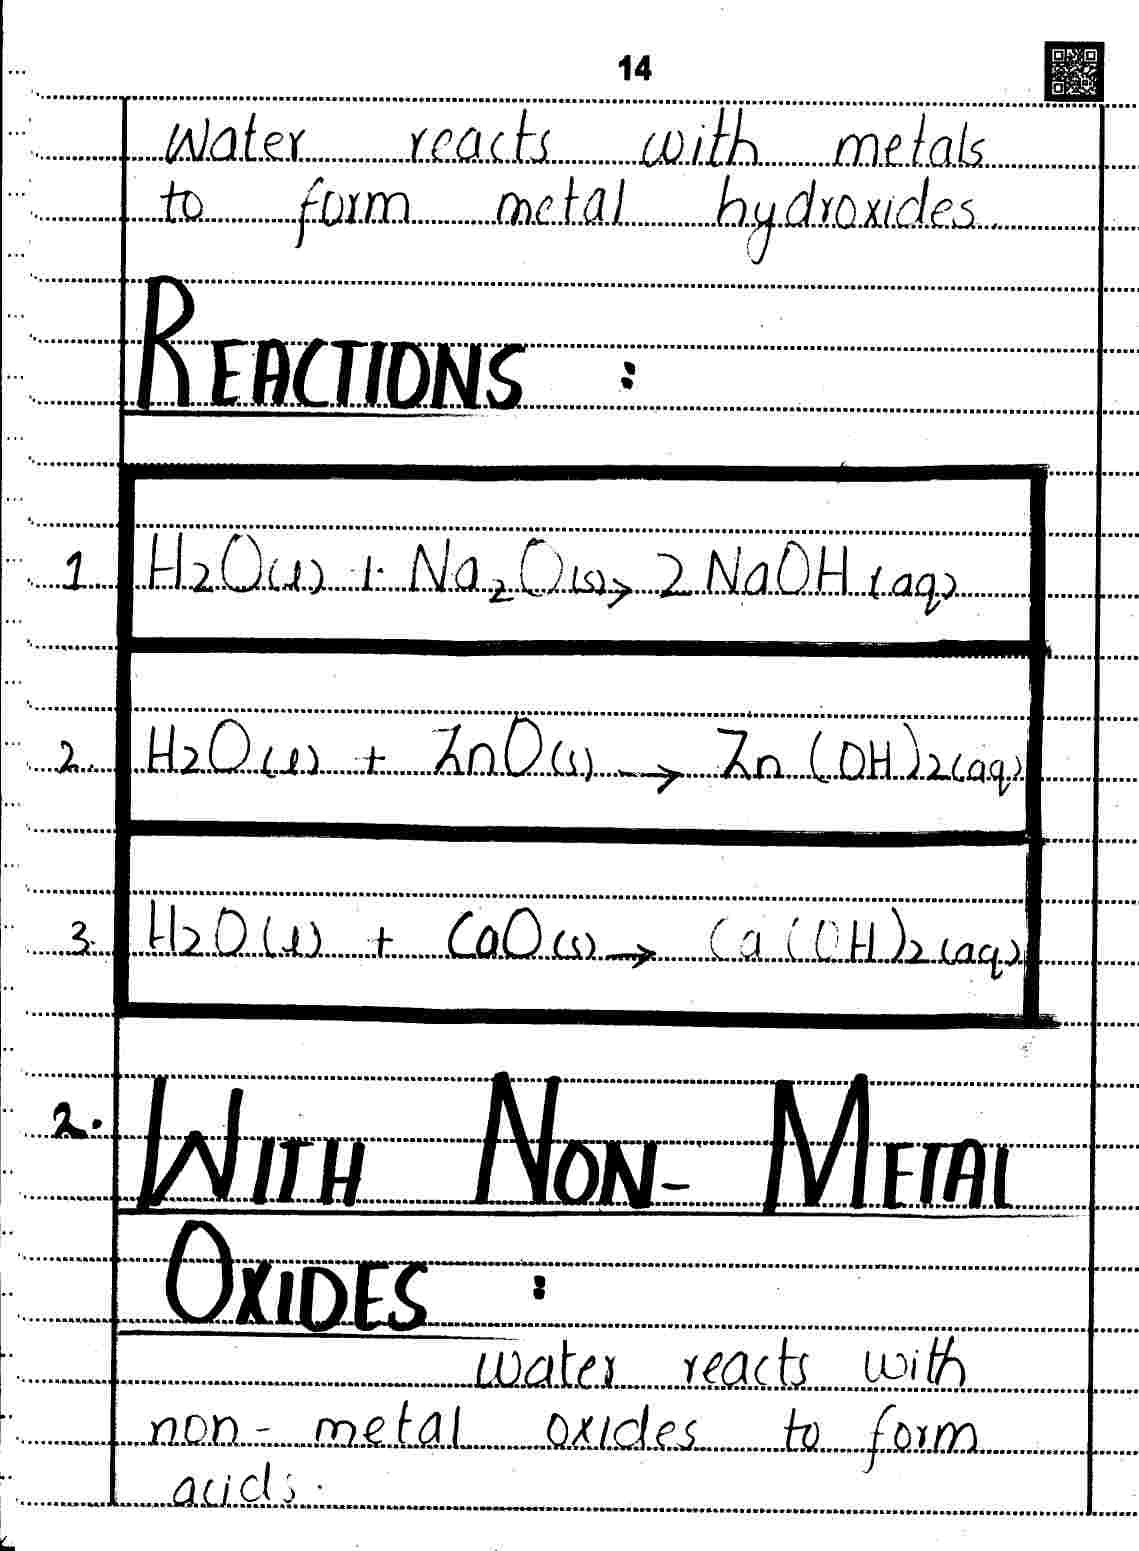 14
Water reacts with metals
to form metal hydroxides.
REACTIONS :
1 H2O(l) + Na2O(s) → 2NaOH(aq)
2. H2O(l) + ZnO(s) → Zn(OH)2(aq)
3. H2O(l) + CaO(s) → Ca(OH)2(aq)
2. WITH NON-METAL
OXIDES :
water reacts with
non-metal oxides to form
acids.